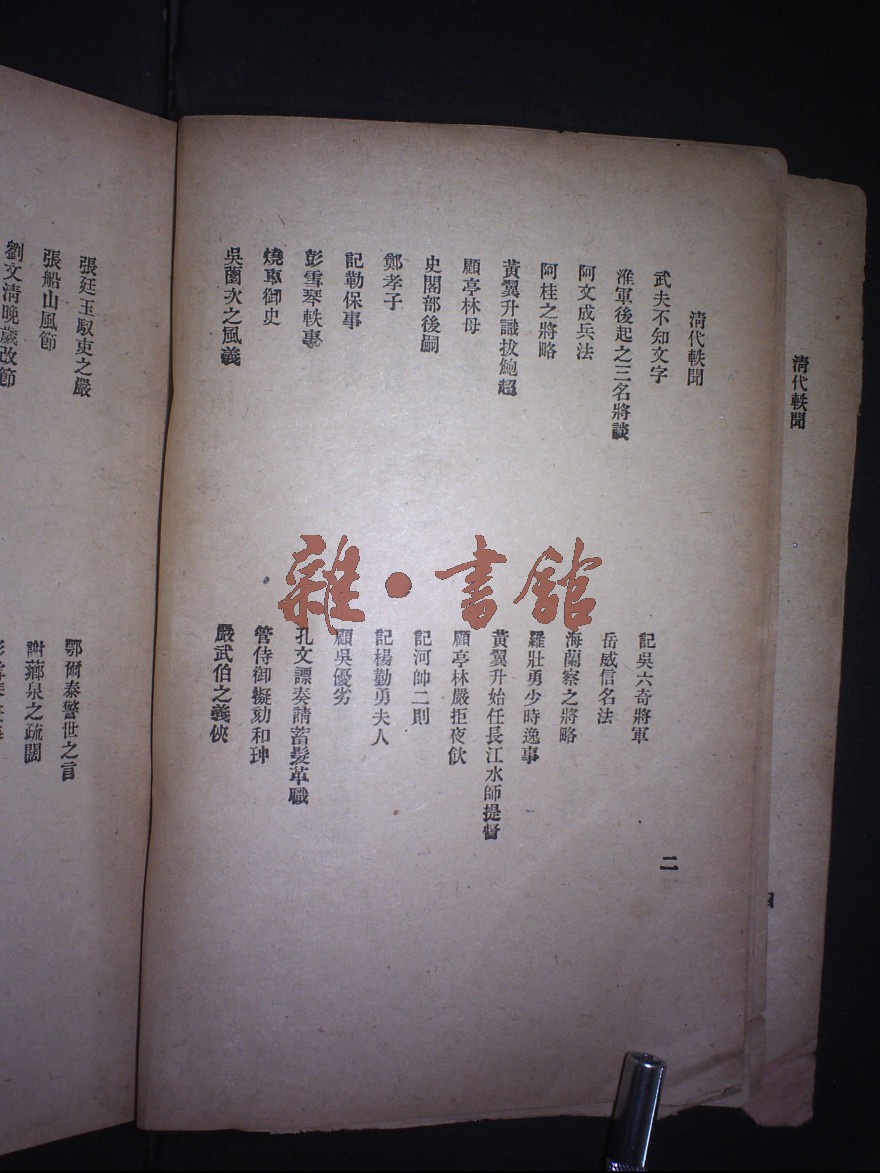 清代軼聞
清代軼聞
武夫不知文字
記吳六奇將軍
淮軍後起之三名將談
岳威信名法
阿文成兵法
海蘭察之將略
阿桂之將略
羅壯勇少時逸事
黃翼升識拔鮑超
黃翼升始任長江水師提督
顧亭林母
顧亭林嚴拒夜飲
史閣部後嗣
記河帥二則
鄭孝子
記楊勤勇夫人
記勒保事
顧吳優劣
彭雪琴軼事
孔文謤奏請蓄髮革職
燒車御史
管侍御擬劾和珅
吳薗次之風義
嚴武伯之義俠
二
張廷玉馭吏之嚴
鄂爾泰警世之言
張船山風節
謝薌泉之疏闊
劉文清晚歲改節
雜·書館